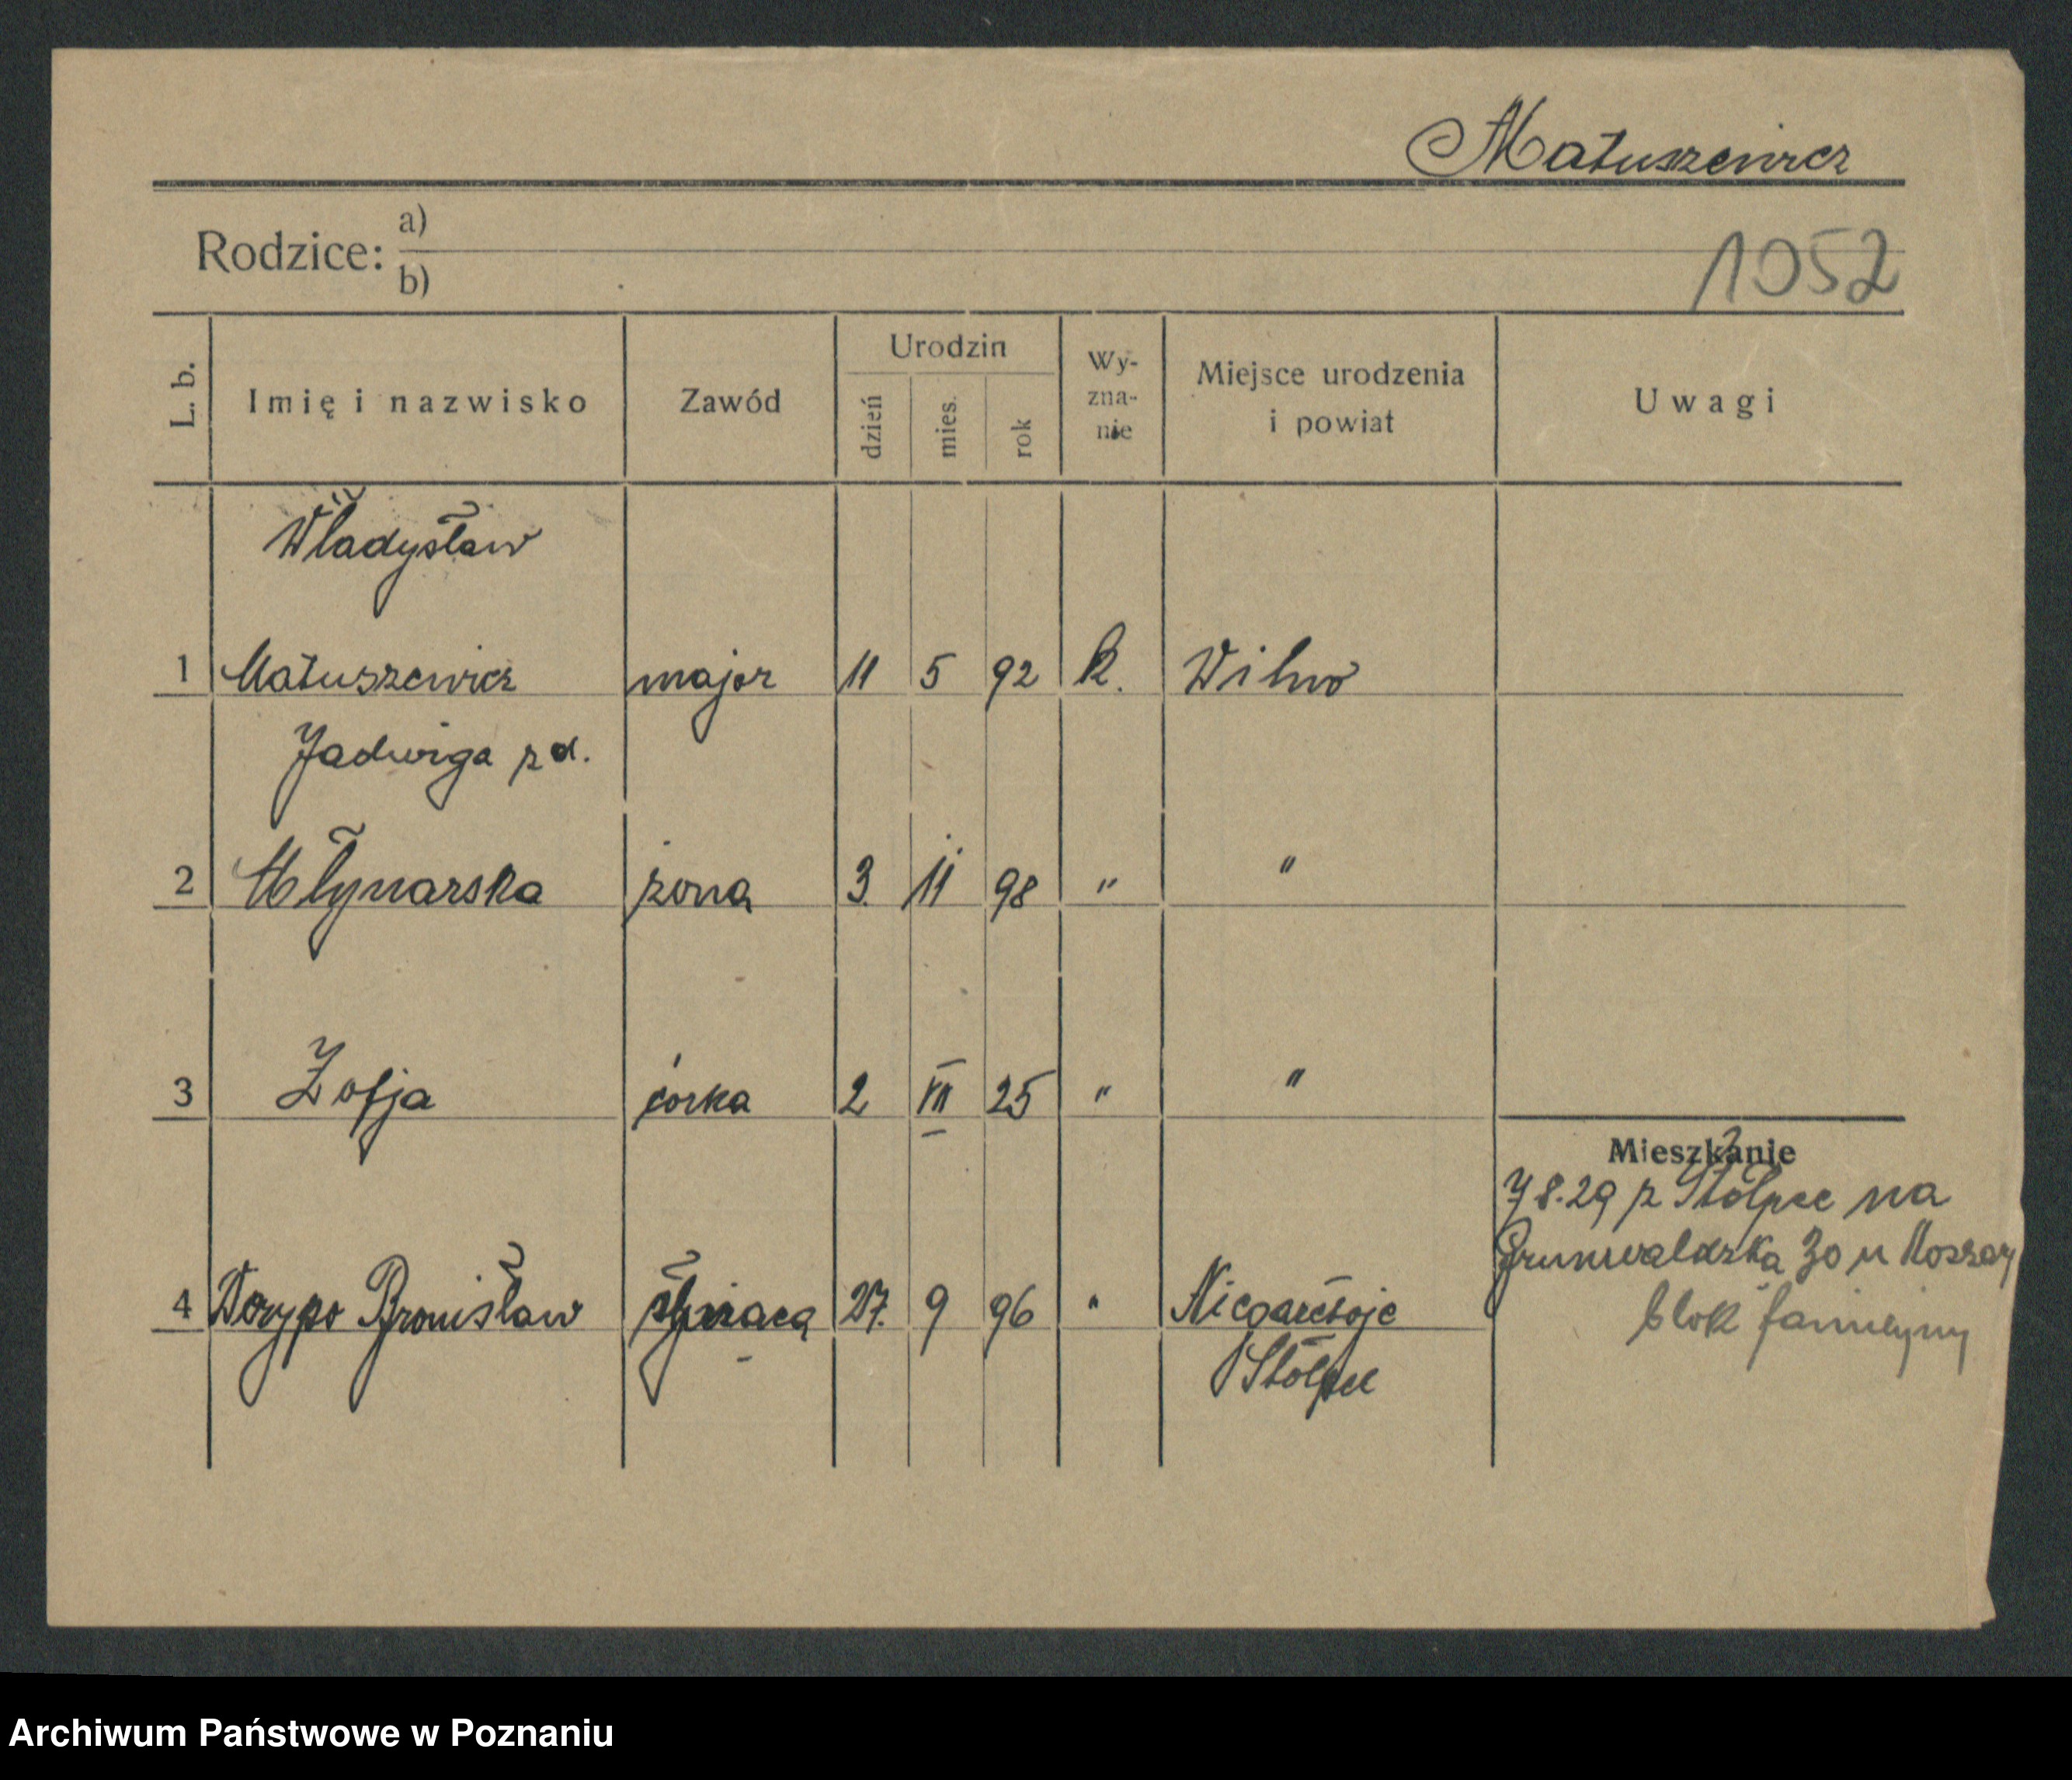 Matuszewicz
Rodzice: a)
b)
1052
L. b. Imię i nazwisko Zawód Urodzin dzień mies. rok Wy-zna-nie Miejsce urodzenia i powiat Uwagi
Władysław
1 Matuszewicz major 11 5 92 k. Wilno
Jadwiga z d.
2 Młynarska żona 3. 11 98 " "
3 Zofja córka 2 VII 25 " "
Mieszkanie
7 8.29 z Stołpce na
Grunwaldzka 30 u Koszary
blok familijny
4 Bronisław służąca 27. 9 96 "
Stołpce
Archiwum Państwowe w Poznaniu